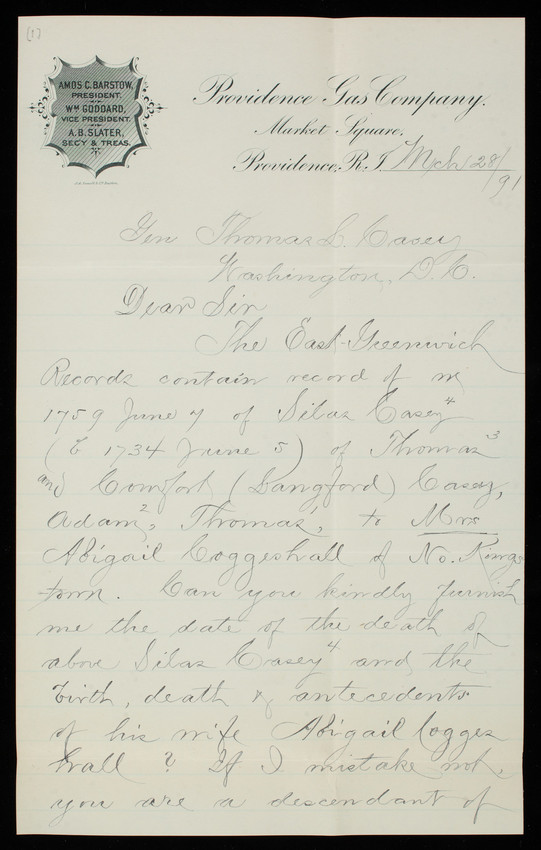 (1)
AMOS C. BARSTOW,
PRESIDENT.
WM GODDARD,
VICE PRESIDENT.
A. B. SLATER,
SEC'Y & TREAS.
Providence Gas Company.
Market Square.
Providence, R.I. Mch 28/
/91
Gen Thomas L. Casey
Washington, D.C.
Dear Sir
The East-Greenwich
Records contain record of m
1759 June 7 of Silas Casey 4
(b 1734 June 5) of Thomas 3
and Comfort (Langford) Casey,
Adam 2, Thomas 1, to Mrs
Abigail Coggeshall of No. Kings
town. Can you kindly furnish
me the date of the death of
above Silas Casey 4 and the
birth, death & antecedents
of his wife Abigail Cogges
hall? If I mistake not,
you are a descendant of